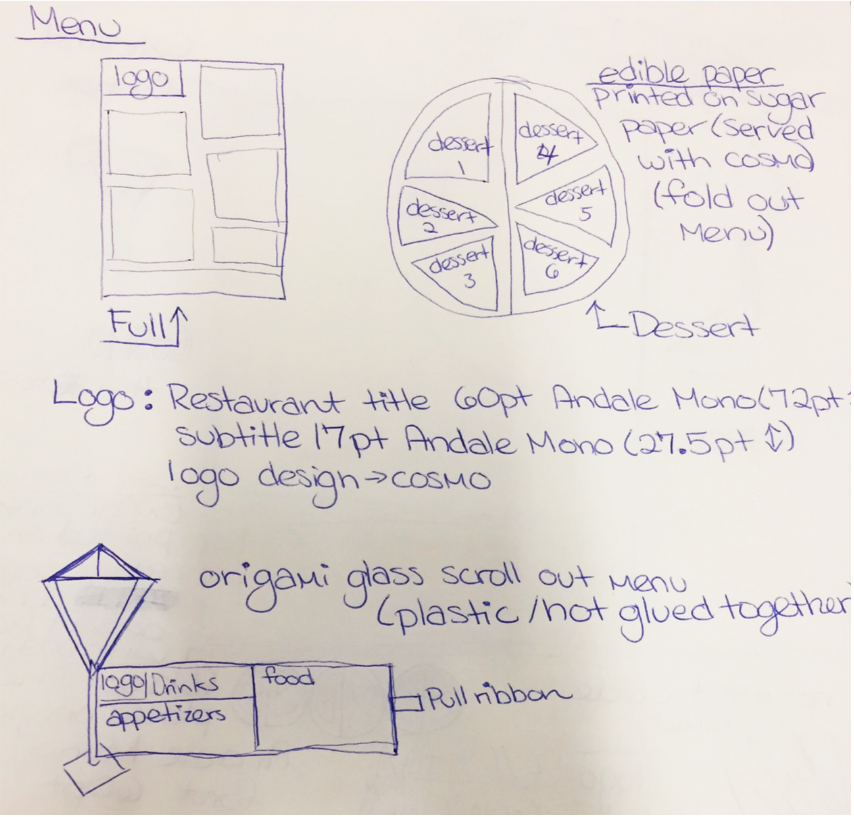 Menu
logo
Full↑
dessert
1
dessert
2
dessert
3
dessert
4
dessert
5
dessert
6
edible paper
printed on sugar
paper (served
with cosmo)
(fold out
menu)
Dessert
Logo: Restaurant title 60pt Andale Mono (72pt
subtitle 17pt Andale Mono (27.5pt ↕)
logo design → cosmo
origami glass scroll out menu
(plastic/not glued together
logo/Drinks
appetizers
food
Pull ribbon